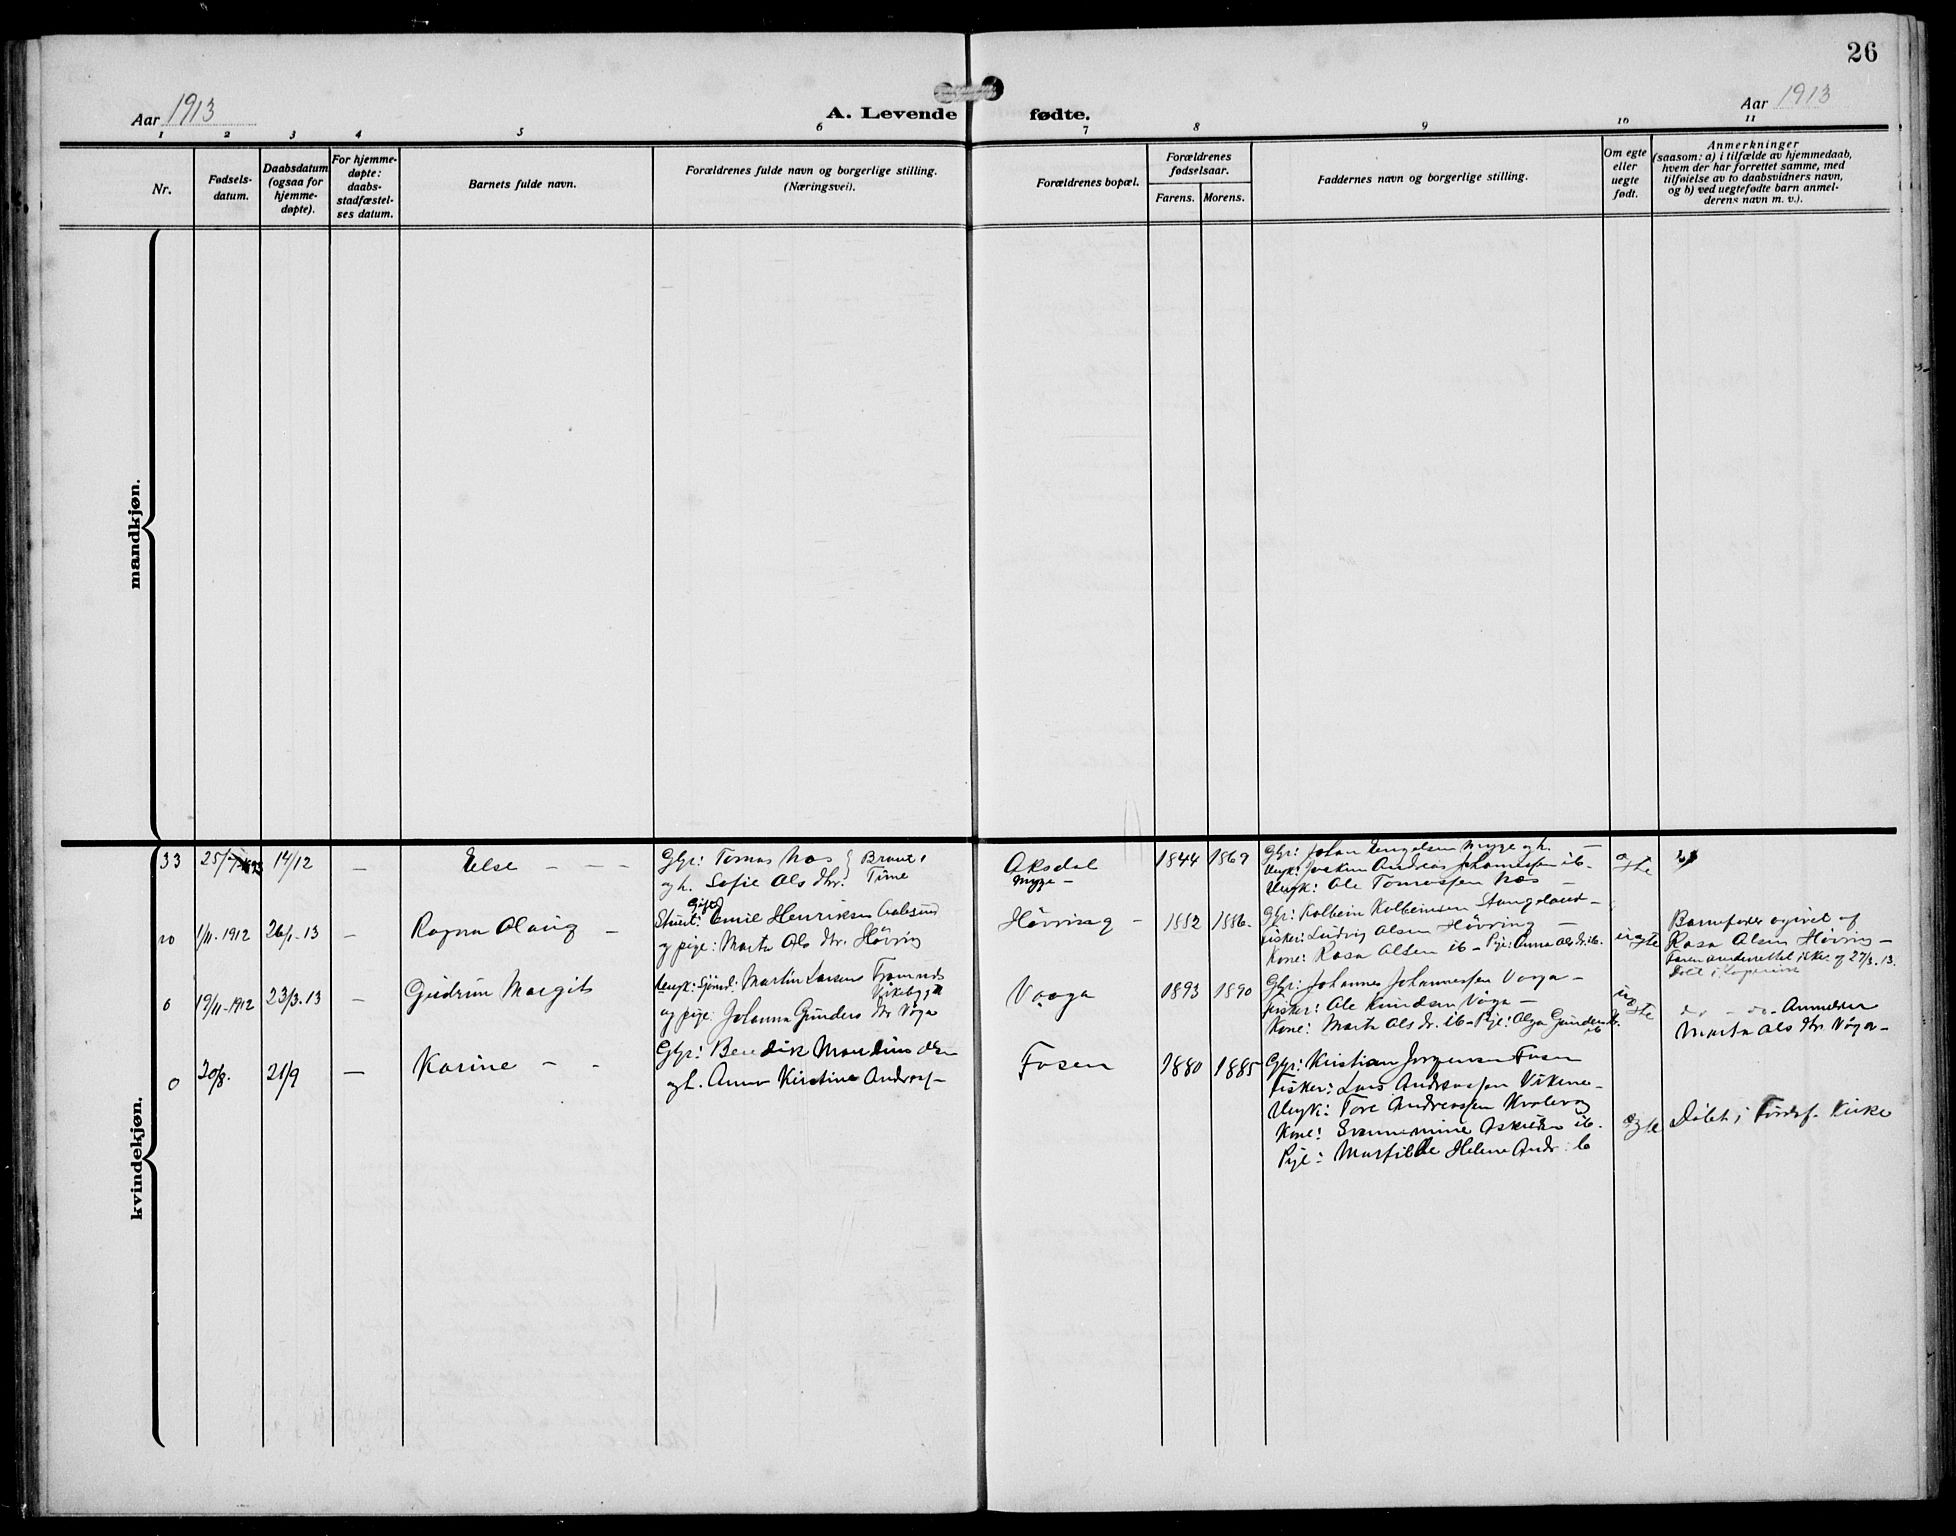 26
Aar 1913
A. Levende fødte.
Aar 1913
1 2 3 4 5 6 7 8 9 10 11
Nr.
Fødsels-
datum.
Daabsdatum
(ogsaa for
hjemme-
døpte).
For hjemme-
døpte:
daabs-
stadfæstel-
ses datum.
Barnets fulde navn.
Forældrenes fulde navn og borgerlige stilling.
(Næringsvei).
Forældrenes bopæl.
Forældrenes
fødselsaar.
Farens. Morens.
Faddernes navn og borgerlige stilling.
Om egte
eller
uegte
født.
Anmerkninger
(saasom: a) i tilfælde av hjemmedaab,
hvem der har forrettet samme, med
tilføielse av to daabsvidners navn,
og b) ved uegtefødte barn anmel-
derens navn m. v.).
mandkjøn.
kvindekjøn.
33 14/12 — Else — — —
Gbr: Tomas Næs
og h. Sofie Ols dtr. Time
Aksdal
Myge —
1844 1869
Gbr: Johan Myge og h. —
Ungk: Joakim Andreas Johannessen ib —
Ungk: Ole Tomassen Næs —
egte
1/11-1912 26/1-13 — Ragna Olaug —
Gift
Stuert: Emil Henriksen Aalesund
og pige: Marta Ols dtr. Hövring
Hövring —
1886.
Gbr: Kolbein Kolbeinsen Stangeland —
Fisker: Ludvig Olsen Hövring —
Kone: Rasa Olsen ib — Pije: Anna Ols dr. ib.
uegte
Barnefader opgivet af
Rasa Olsen Hövring —
27/3.13.
0 19/11-1912 23/3.13 Gudrun Margit
Ungk: Sjömd: Martin Larsen
og pige: Johanna Gunders dtr Våga
Vaaga
1893 1890
Gbr: Johannes Johannessen Vaaga —
Fisker: Ole Knudsen Våga —
Kone: Marta Ols dr. ib — Pije: Olga Gunders dr.
ib
uegte
do — do — Anmelder
Marta Ols dtr. Våga —
0 30/8. 21/9 — Karine — —
Gbr: Bendik Mandius Olsen
og h. Anna Kirstine Andreas —
Fosen
1880 1885
Gbr: Kristian Jörgensen Fosen
Fisker: Lars Andreassen Vikene —
Ungk: Tore Andreassen Kvalevag
Kone: ib.
Pije: Matilde Helene Andr. ib
egte
Döbt i Kirke